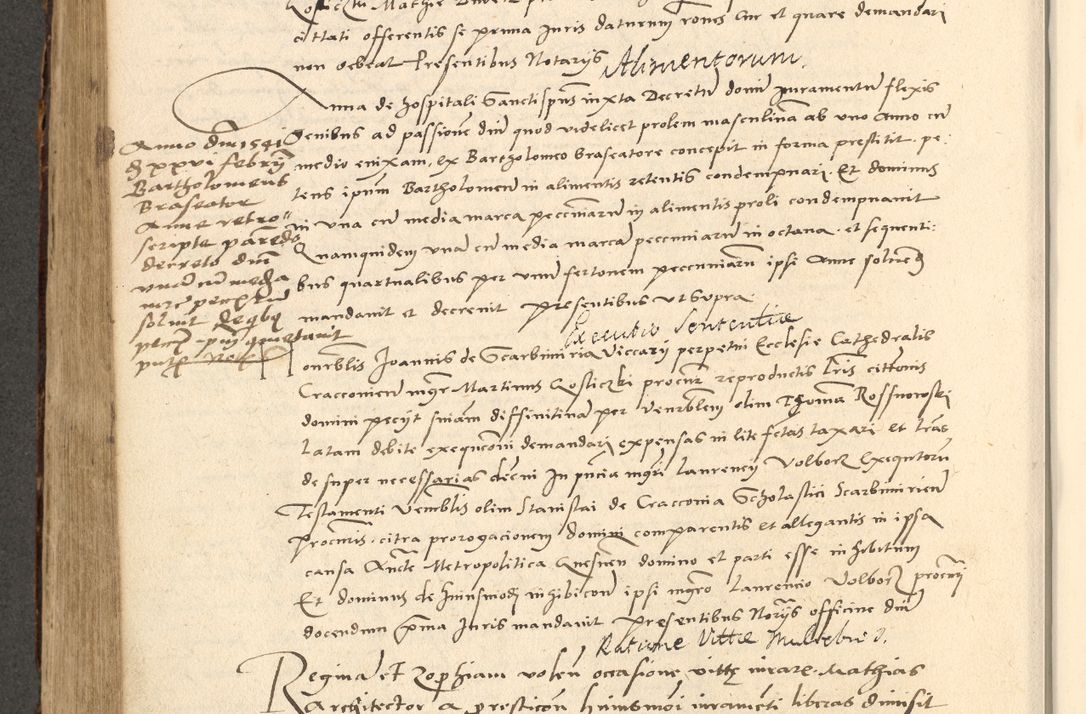 cittati offerentis se prima Juris daturum rones Cur et quare demandari
non debeat Presentibus Notariis
Alimentorum.
Anna de hospitali Sancti spus iuxta Decretu domini Juramentu flexis
Genibus ad passione dni quod videlicet prolem masculina ab uno Anno cu
medio enixam, ex Bartholomeo braseatore concepit in forma prestitit. pe:
tens ipum Bartholomeu in alimentis retentis condempnari. Et dominus
in una cu media marca pecuniaru in alimentis proli condempnavit
Quamquidem una cu media marca pecuniaru in octava. et sequenti:
bus quartualibus per unu fertonem pecuniaru ipsi Anne solvend
mandavit et decrevit Presentibus ut supra
Anno dni 1541
d xxvi februarii
Bartholomeus
Braseator
Anne retro
scripte parendo
decreto dni
una cu media
solvit de qbq
Executio Sententie
honrblis Joannis de Scarbimiria Viccarii perpetui Ecclesie Cathedralis
Cracovien mgr Martinus Gosliczki procur reproductis lris cittonis
domini peciit sniam diffinitivam per Venrblem olim Thoma Rossnowski
latam debite exequcioni demandari expensas in lite fctas taxari et lras
de super necessarias decerni In pncia mgri Laurencii Volbor Exequtoru
Testamenti Venrblis olim Stanislai de Cracovia Scholastici Scarbimirien
procuris. citra prorogacionem domini comparentis et allegantis in ipsa
causa Aucte Metropolitica Gnesnen domino et parti esse inhibitum
Et dominus de huiusmodi inhibicone ipsi mgro Laurencio Volbor procuri
docendum prima Juris mandavit Presentibus Notariis officine dni
Ratione Vitte Muliebris.
Regina et Zophiam volen occasione vitte iurare. Mathias
Architector a prestacon huiusmoi iurameti liberas dimisit